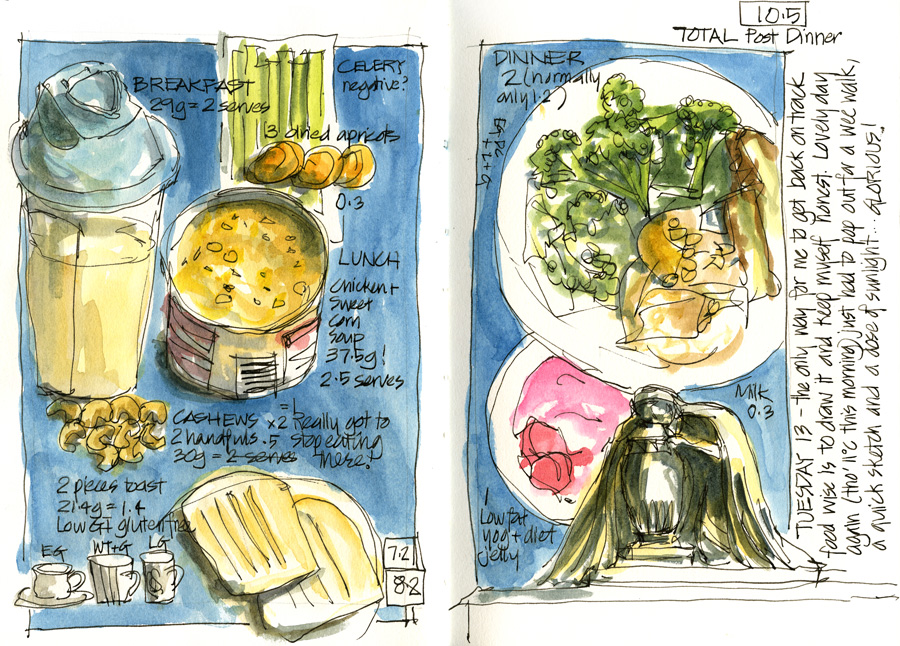 BREAKFAST
29g = 2 serves
CELERY
negative?
3 dried apricots
0.3
LUNCH
Chicken +
Sweet
Corn
Soup
37.5g!
2.5 serves
CASHEWS
2 handfuls
30g = 2 serves
x2 = 1
.5
Really got to
stop eating
these!
2 pieces toast
21.4g = 1.4
Low GI + gluten free
EG
WT+G
LG
7.2
8.2
10.5
TOTAL Post Dinner
DINNER
2 (normally
only 1.2)
Milk
0.3
1
Low fat
yog + diet
jelly
TUESDAY 13 - the only way for me to get back on track
food wise is to draw it and keep myself honest. Lovely day
again (tho' 11°c this morning) just had to pop out for a wee walk,
a quick sketch and a dose of sunlight... GLORIOUS!